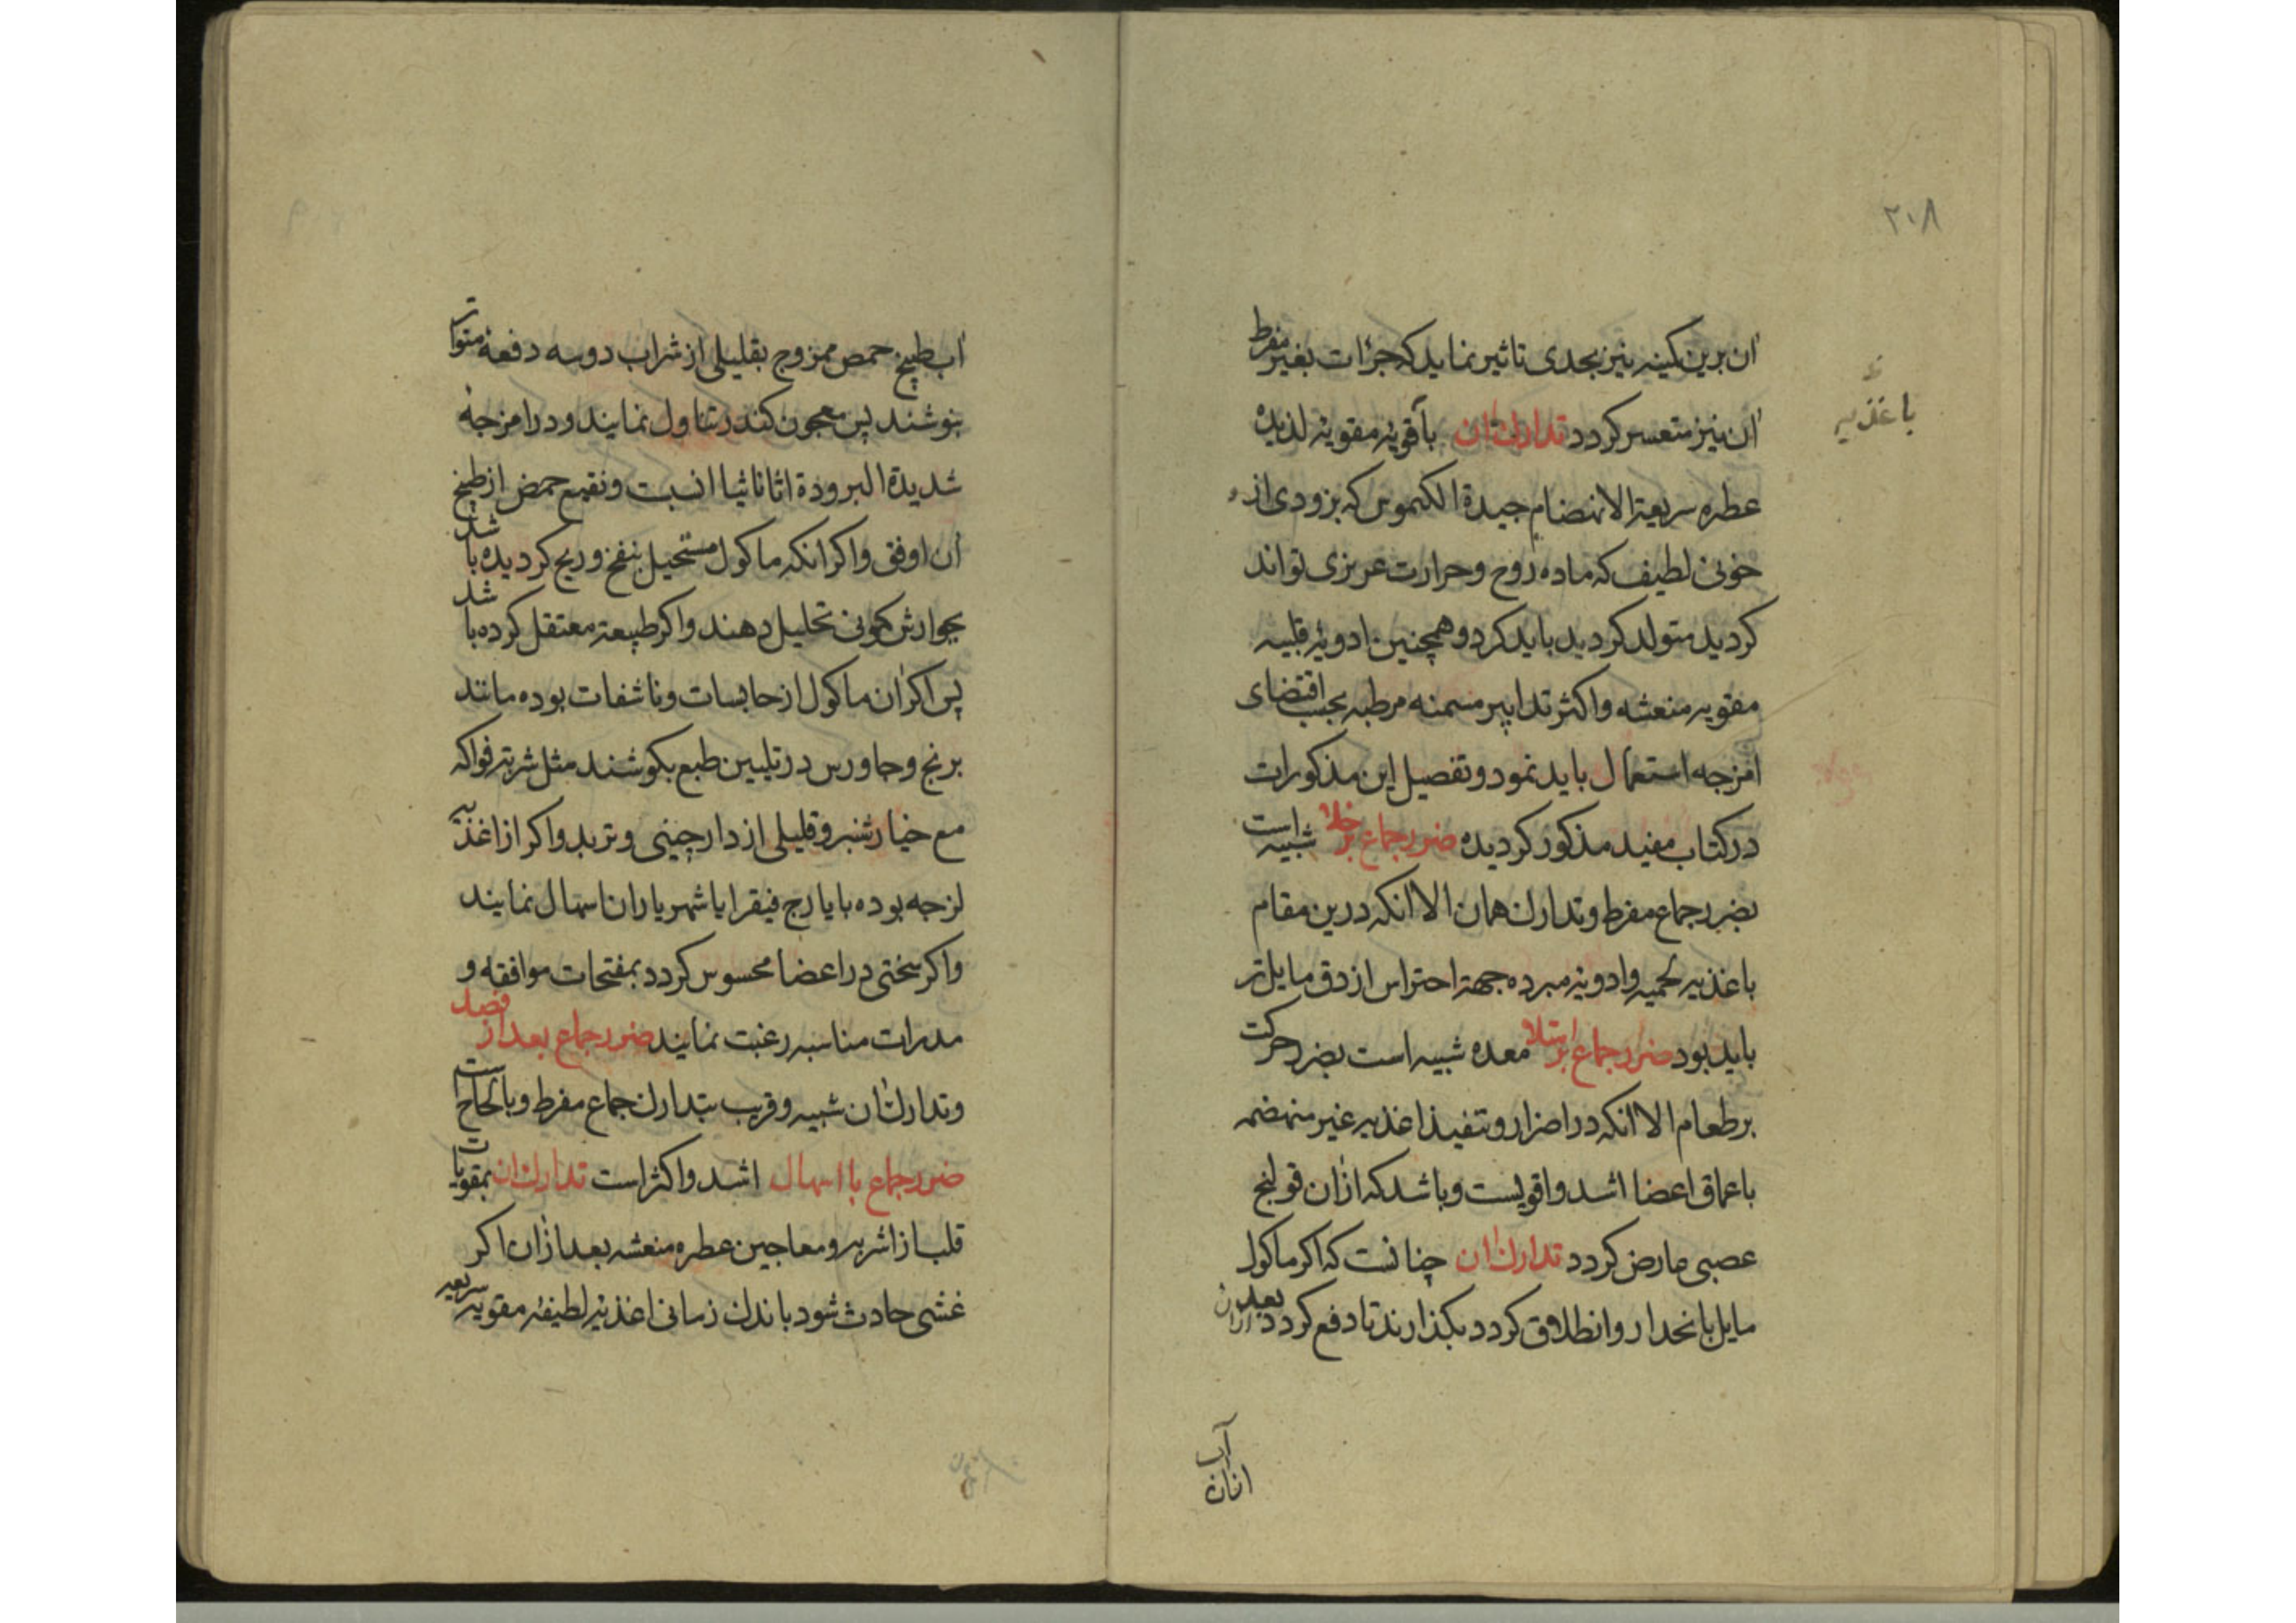 ۲۰۸
ان برین کینه نیز بحدی تاثیر نماید که جرٔات بغیر مفرط
ان نیز متعسر کردد تدارك ان باقویهٔ مقویهٔ لذیذه
باغذیه
عطره سریعة الانهضام جیدة الکیموس که بزودی از
خونی لطیف که ماده روح و حرارت عریزی تواند
کردید متولد کردید باید کرد و همچنین ادویهٔ قلبیه
مقویه منعشه و اکثر تدابیر مسمنه مرطبه بحسب اقتضای
امزجه استعمال باید نمود و تفصیل این مذکورات
درکتاب مفید مذکور کردیده ضرر جماع بر خلا شبیه است
بضرر جماع مفرط و تدارك همان الا انکه درین مقام
باغذیه لحمیه وادویهٔ مبرده جهة احتراس از دق مایل تر
باید بود ضرر جماع بر امتلا معده شبیه است بضرر حرکت
بر طعام الا انکه در اضرار و تنفیذ اغذیه غیر منهضمه
باعماق اعضا اشد واقویست و باشد که ازان قولنج
عصبی عارض کردد تدارك ان چنانست که اکر ماکول
مایل بانحدار وانطلاق کردد بکذارند تا دفع کردد بعد ازان
آب
اب طبیخ حمص ممزوج بقلیلی از شراب دوسه دفعهٔ متواتر
بنوشند پس معجون کندر تناول نمایند و در امزجهٔ
شدیدة البرودة اثاناثیا انسبت و نقیع حمص از طبیخ
ان اوفق واکر انکه ماکول مستحیل بنفخ و ریح کردیده باشد
بجوارش کمونی تحلیل دهند واکر طبیعة معتقل کرده باشد
پس اکر ان ماکول از حابسات و ناشفات بوده مانند
برنج و جاورس در تلیین طبع بکوشند مثل شربة فواکه
مع خیارشنبر و قلیلی از دارچینی و تربد واکر از اغذیه
لزجه بوده بایارج فیقرا یا شهریاران اسهال نمایند
واکر سختی در اعضا محسوس کردد بمفتحات موافقه و
مدرات مناسبه رغبت نمایند ضرر جماع بعد از فصد
وتدارك ان شبیه و قریب بتدارك جماع مفرط و بالحاح است
ضرر جماع با اسهال اشد و اکثر است تدارك ان بمقویات
قلب از اشربه و معاجین عطره منعشه بعد ازان اکر
غشی حادث شود باندك زمانی اغذیه لطیفهٔ مقویه سریعه